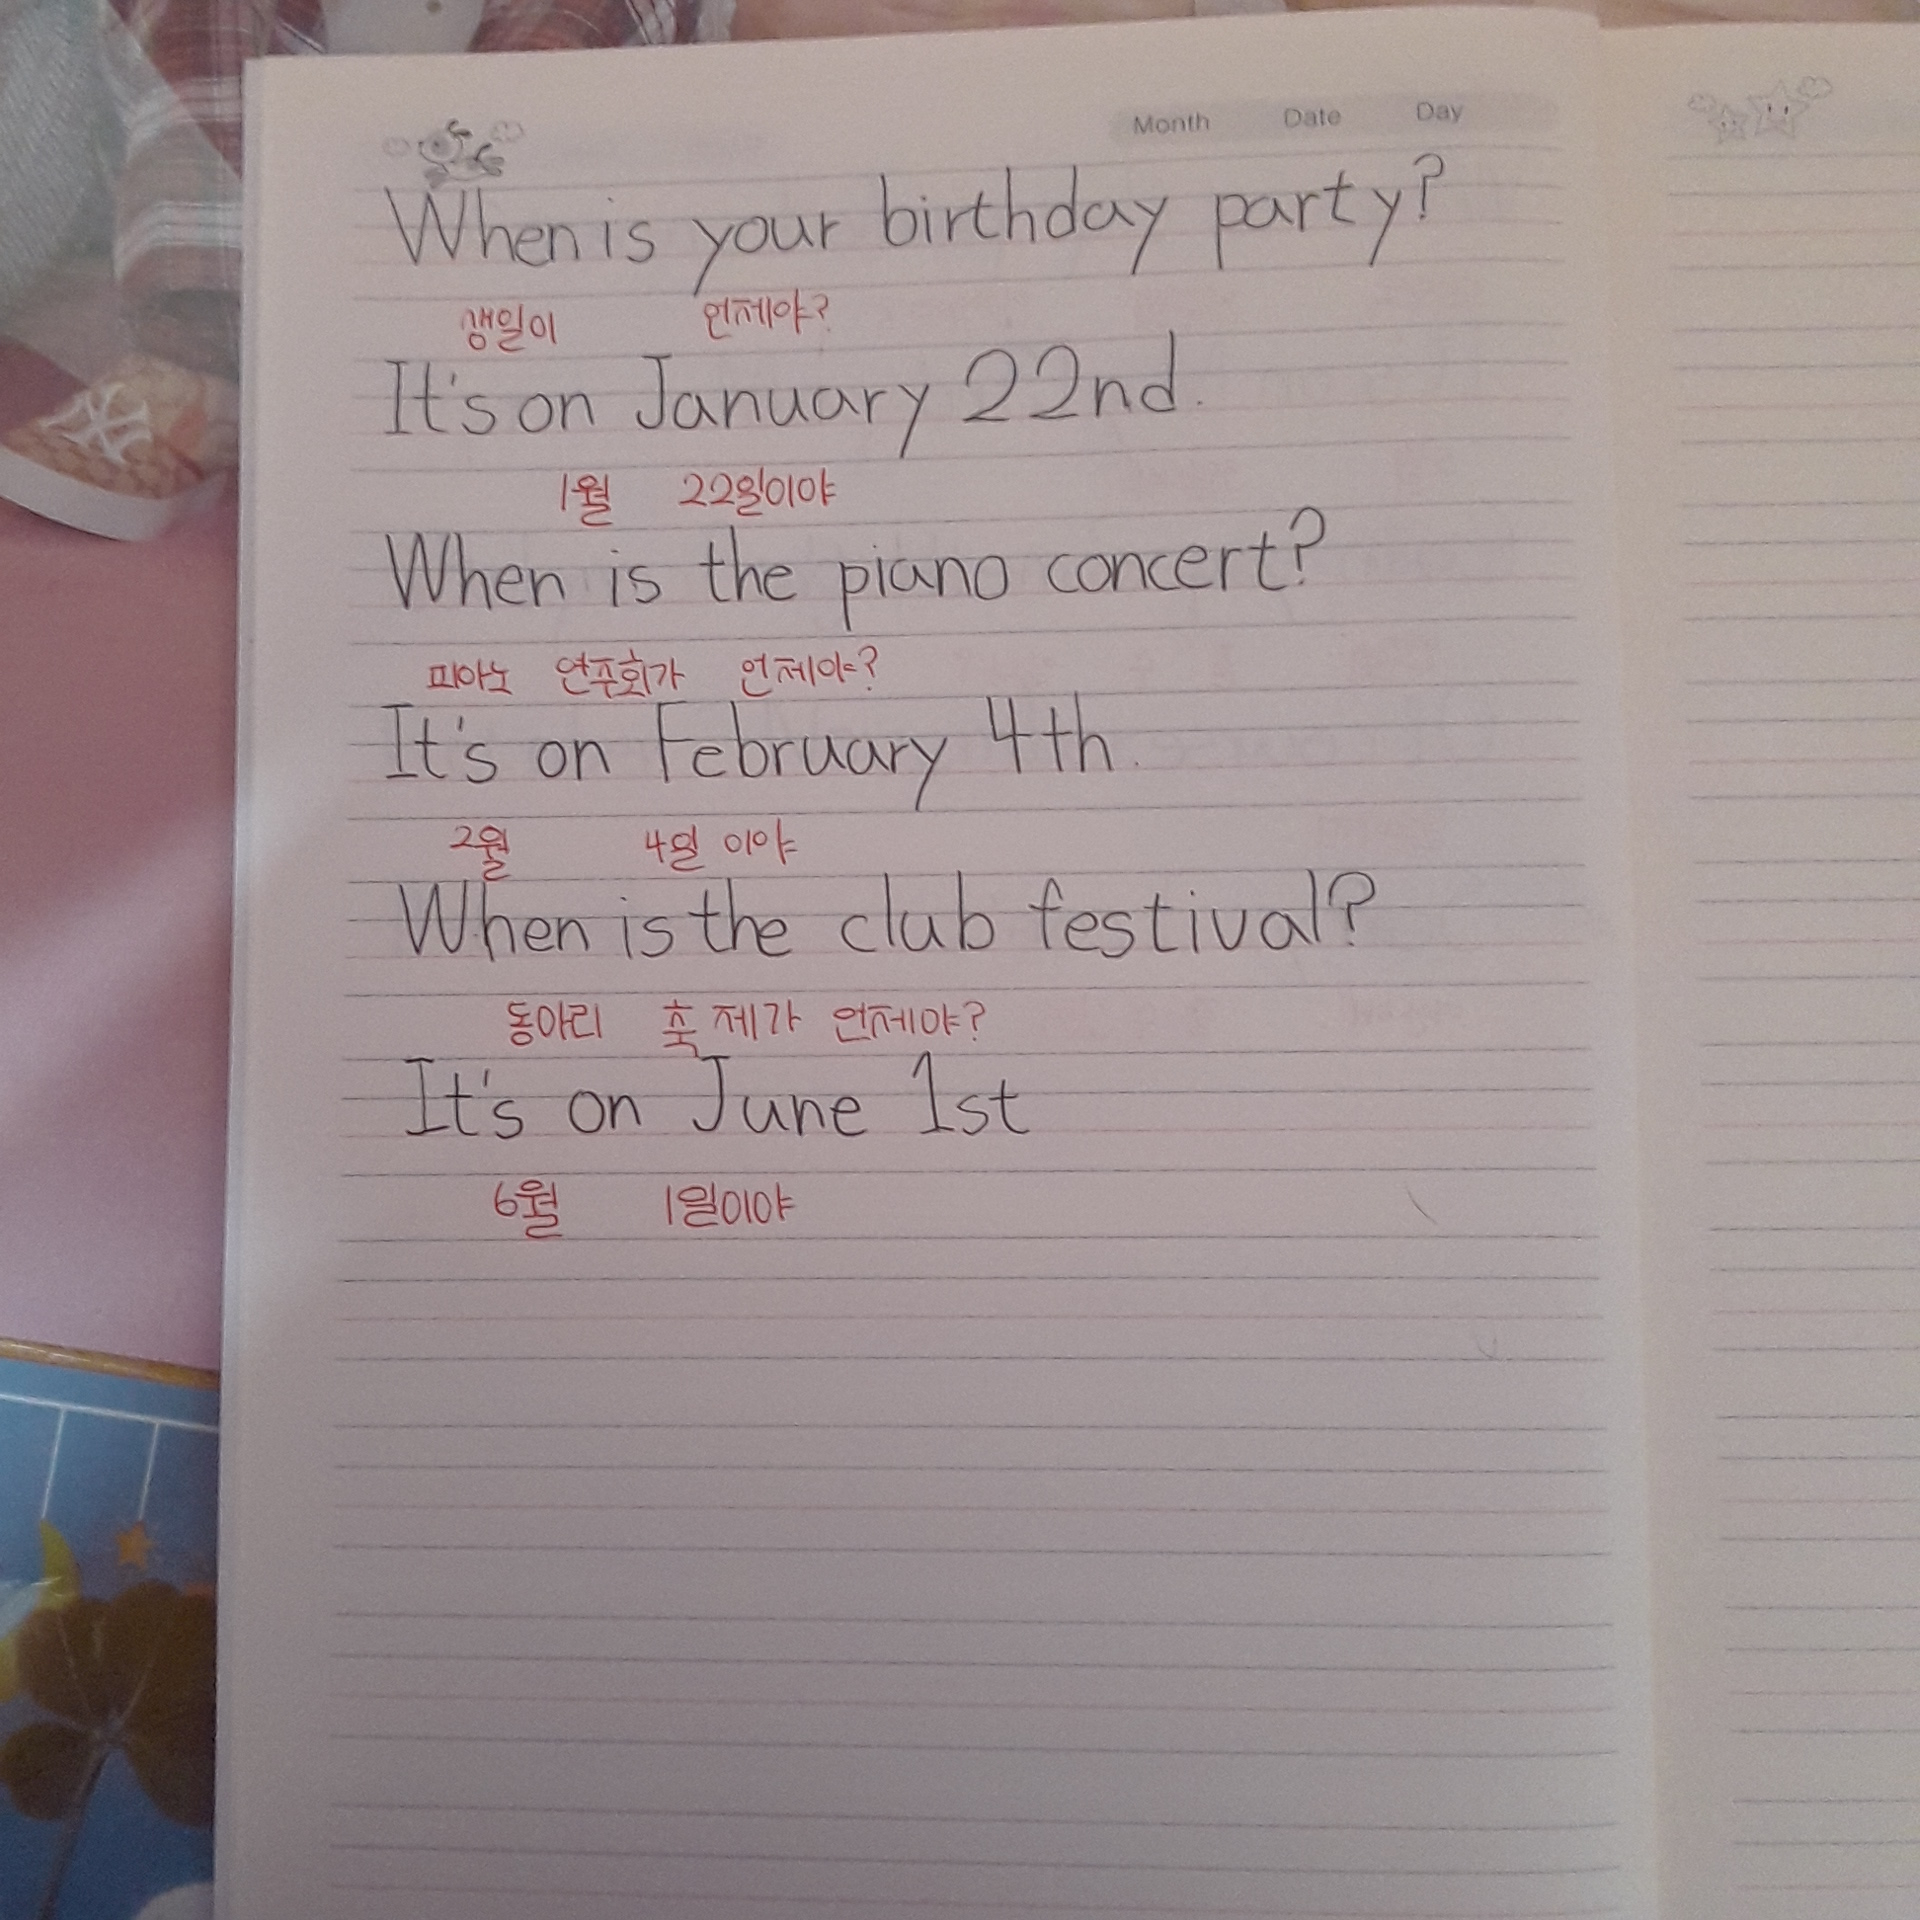 Month Date Day
When is your birthday party?
생일이 언제야?
It's on January 22nd.
1월 22일이야
When is the piano concert?
피아노 연주회가 언제야?
It's on February 4th.
2월 4일 이야
When is the club festival?
동아리 축제가 언제야?
It's on June 1st
6월 1일이야